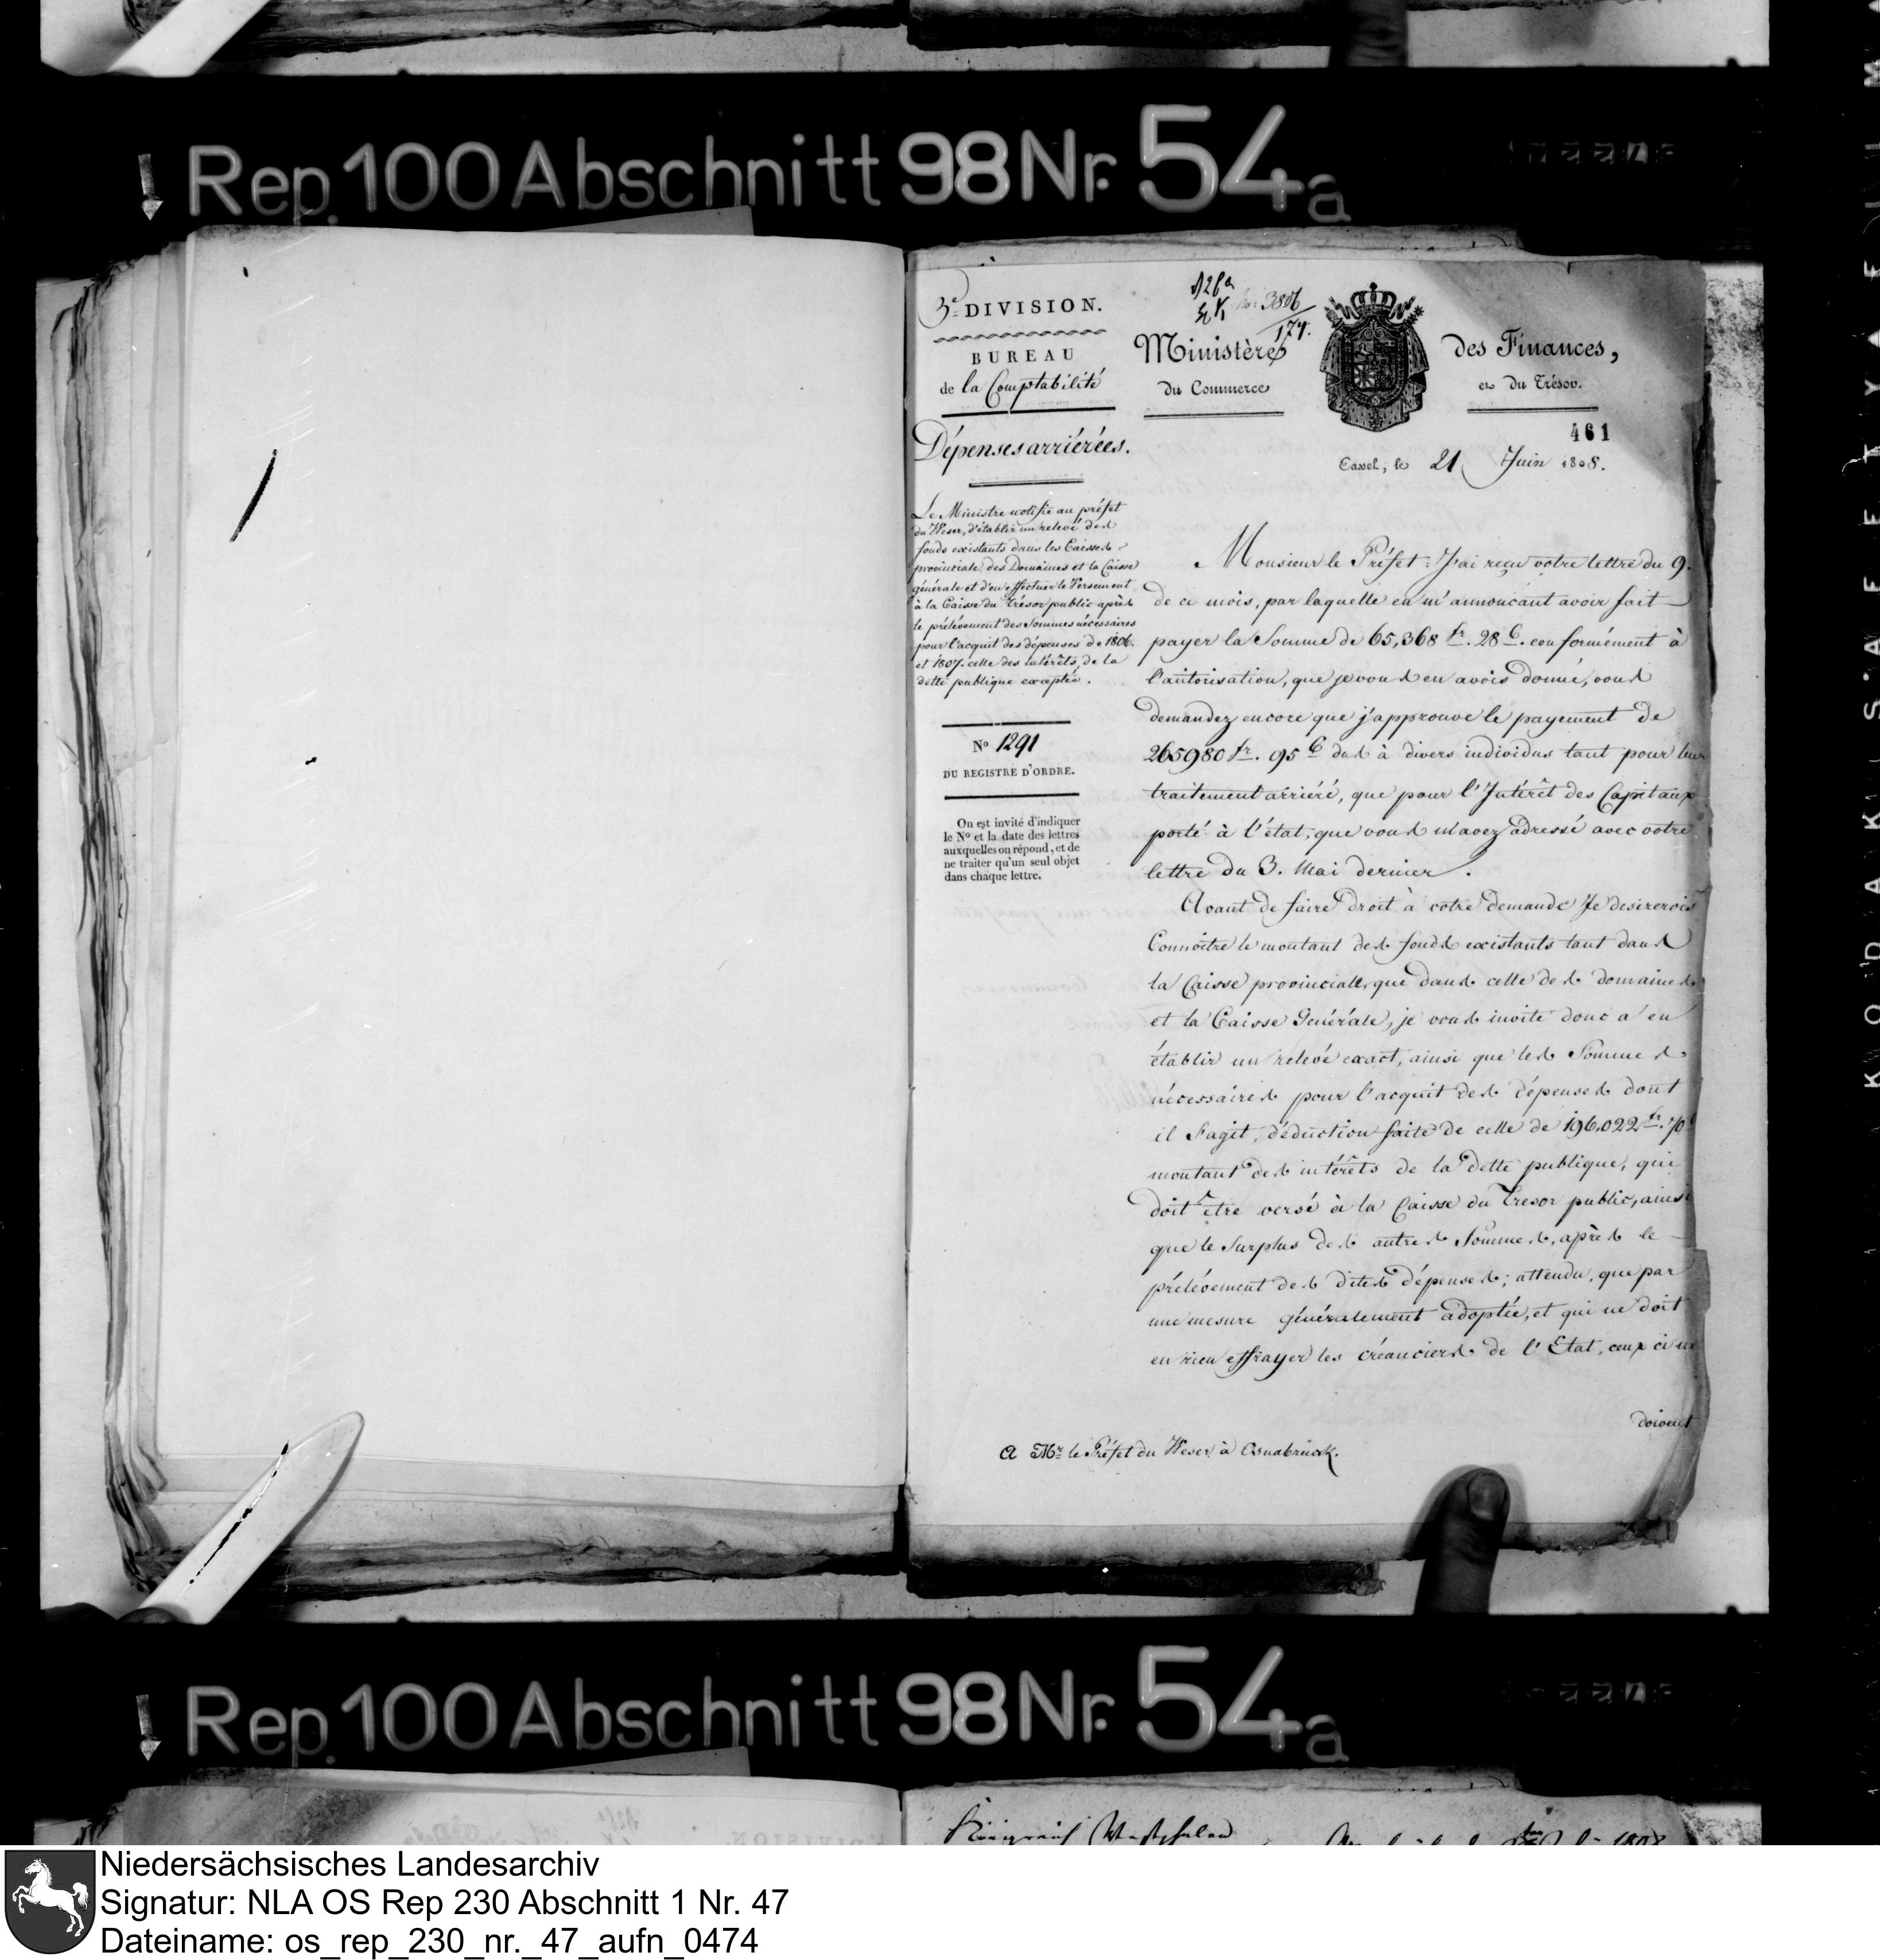 Rep. 100 Abschnitt 98 Nr. 54a
3e DIVISION.
BUREAU
de la Comptabilité
Dépenses arriérées.
No. 3806
174.
Ministère des Finances,
du Commerce et du Trésor.
461
Cassel, le 21 Juin 1808.
Le Ministre notifie au préfet
du Weser, d'établir un relevé des
fonds existants dans les Caisses
provinciale, des Domaines et la Caisse
générale et d'en effectuer le Versement
à la Caisse du Trésor public après
le prélévement des Sommes nécessaires
pour l'acquit des dépenses de 1806.
et 1807. celle des intérêts, de la
dette publique exceptée.
No 1291
DU REGISTRE D'ORDRE.
On est invité d'indiquer
le No et la date des lettres
auxquelles on répond, et de
ne traiter qu'un seul objet
dans chaque lettre.
Monsieur le Préfet: J'ai reçu votre lettre du 9.
de ce mois, par laquelle en m'annonçant avoir fait
payer la Somme de 65,368 fr. 28 C. conformément à
l'autorisation, que je vous en avois donné, vous
demandez encore que j'approuve le payement de
265980 fr. 95 C dus à divers individus tant pour leur
traitement arriéré, que pour l'Intérêt des Capitaux
porté à l'état, que vous m'avez adressé avec votre
lettre du 3. Mai dernier.
Avant de faire droit à votre demande Je desirerois
Connoître le montant des fonds existants tant dans
la Caisse provinciale, que dans celle des domaines
et la Caisse Générale, je vous invite donc à en
établir un relevé exact, ainsi que les Sommes
nécessaires pour l'acquit des dépenses dont
il s'agit, déduction faite de celle de 196,022 fr. 70
montant des intérêts de la dette publique, qui
doit être versé à la Caisse du Tresor public, ainsi
que le Surplus des autres Sommes, après le
prélévement des dites dépenses; attendu, que par
une mesure généralement adoptée, et qui ne doit
en rien effrayer les créanciers de l'Etat, ceux ci ne
doivent
A Mr. le Préfet du Weser à Osnabruck.
Rep. 100 Abschnitt 98 Nr. 54a
Königreich Westphalen
Niedersächsisches Landesarchiv
Signatur: NLA OS Rep 230 Abschnitt 1 Nr. 47
Dateiname: os_rep_230_nr._47_aufn_0474